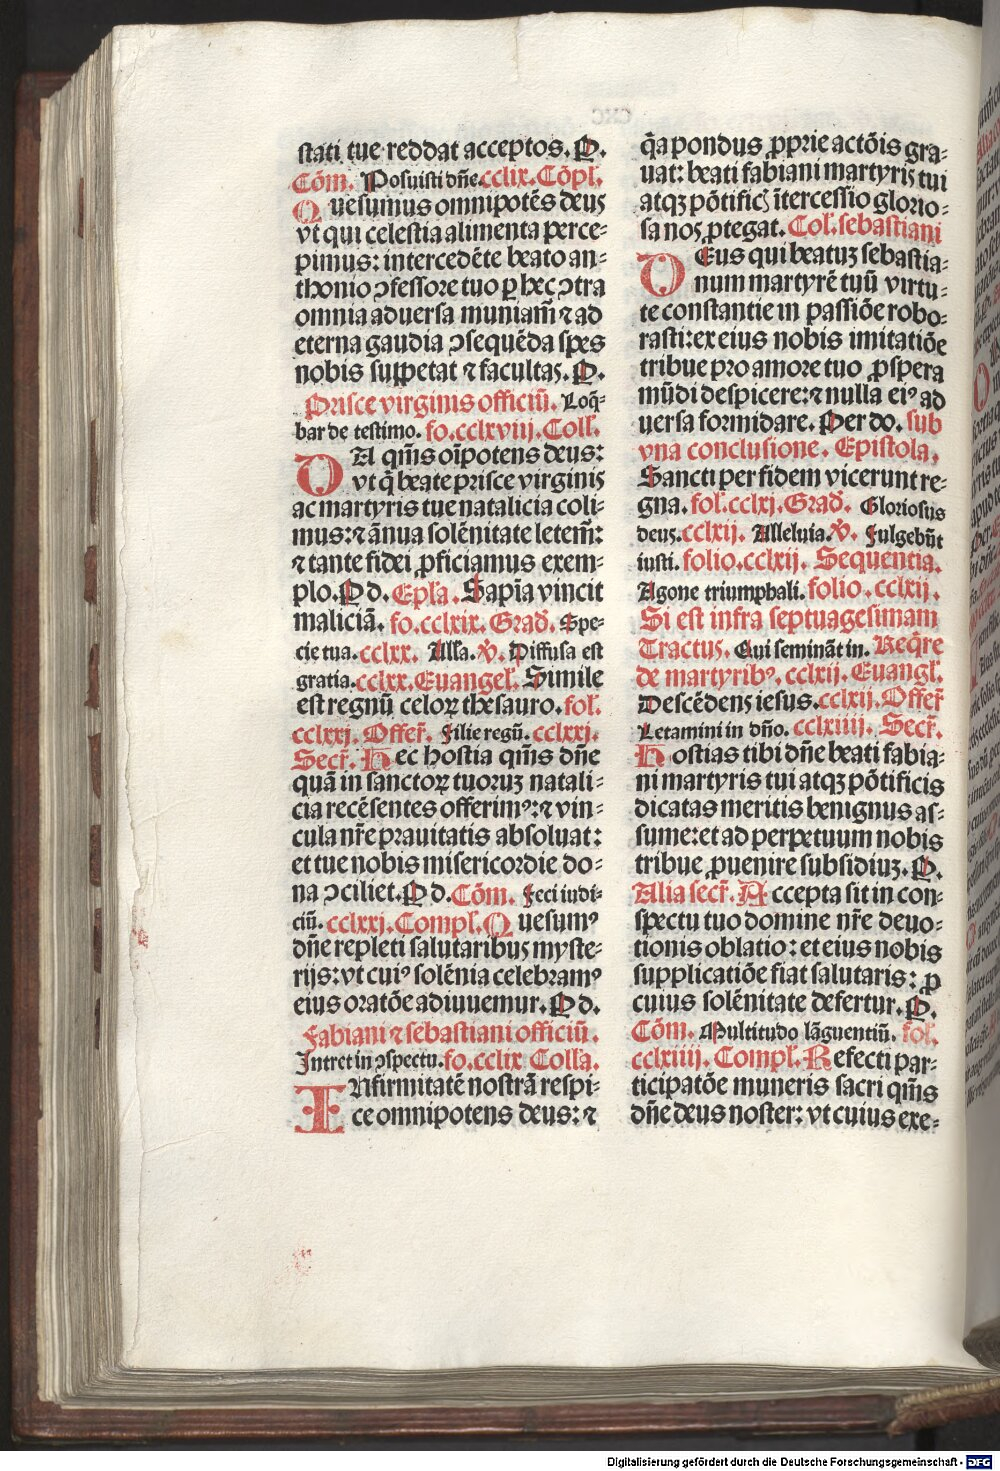 stati tue reddat acceptos. P.
Cōm. Posuisti dn̄e. cclix. Cōpl.
Quesumus omnipotēs deus
vt qui celestia alimenta perce-
pimus: intercedēte beato an-
thonio ↄfessore tuo ꝑ hec ↄtra
omnia aduersa muniam̄ ⁊ ad
eterna gaudia ↄsequēda spes
nobis suppetat ⁊ facultas. P.
Prisce virginis officiū. Loq̄-
bar de testimo. fo. cclxviij. Coll'.
DA qm̄s oīpotens deus:
vt q̄ beate prisce virginis
ac martyris tue natalicia coli-
mus: ⁊ ānua solēnitate letem̄:
⁊ tante fidei ꝓficiamus exem-
plo. P d. Epl'a. Sapīa vincit
maliciā. fo. cclxix. Grad'. Spe-
cie tua. cclxx. All'a. v̄. Diffusa est
gratia. cclxx. Euangel'. Simile
est regnū celoꝝ thesauro. fol'.
cclxxj. Offer̄. Filie regū. cclxxj.
Secr̄. Hec hostia qm̄s dn̄e
quā in sanctoꝝ tuoruꝫ natali-
cia recēsentes offerimꝰ: ⁊ vin-
cula nr̄e prauitatis absoluat:
et tue nobis misericordie do-
na ↄciliet. P d. Cōm. Feci iudi-
ciū. cclxxj. Compl'. Quesumꝰ
dn̄e repleti salutaribus myste-
rijs: vt cuiꝰ solēnia celebramꝰ
eius oratōe adiuuemur. P d.
Fabiani ⁊ sebastiani officiū.
Intret in ↄspectu. fo. cclix Coll'a.
INfirmitatē nostrā respi-
ce omnipotens deus: ⁊
q̄a pondus ꝓprie actōis gra-
uat: beati fabiani martyris tui
atqꝫ pōtific̄ ītercessio glorio-
sa nos ꝓtegat. Col'. sebastiani
DEus qui beatuꝫ sebastia-
num martyrē tuū virtu-
te constantie in passiōe robo-
rasti: ex eius nobis imitatiōe
tribue pro amore tuo ꝓspera
mūdi despicere: ⁊ nulla eiꝰ ad
uersa formidare. Per do. sub
vna conclusione. Epistola.
Sancti per fidem vicerunt re-
gna. fol'. cclxj. Grad'. Gloriosus
deus. cclxij. Alleluia. v̄. Fulgebūt
iusti. folio. cclxij. Sequentia.
Agone triumphali. folio. cclxij.
Si est infra septuagesimam
Tractus. Qui semināt in. Req̄re
de martyribꝰ. cclxij. Euangl'.
Descēdens iesus. cclxij. Offer̄
Letamini in dn̄o. cclxiiij. Secr̄.
Hostias tibi dn̄e beati fabia-
ni martyris tui atqꝫ pōtificis
dicatas meritis benignus as-
sume: et ad perpetuum nobis
tribue ꝓuenire subsidiuꝫ. P.
Alia secr̄. Accepta sit in con-
spectu tuo domine nr̄e deuo-
tionis oblatio: et eius nobis
supplicatiōe fiat salutaris: ꝓ
cuius solēnitate defertur. P.
Cōm. Multitudo lāguentiū. fol'.
cclxiiij. Compl'. Refecti par-
ticipatōe muneris sacri qm̄s
dn̄e deus noster: vt cuius exe-
Digitalisierung gefördert durch die Deutsche Forschungsgemeinschaft - DFG